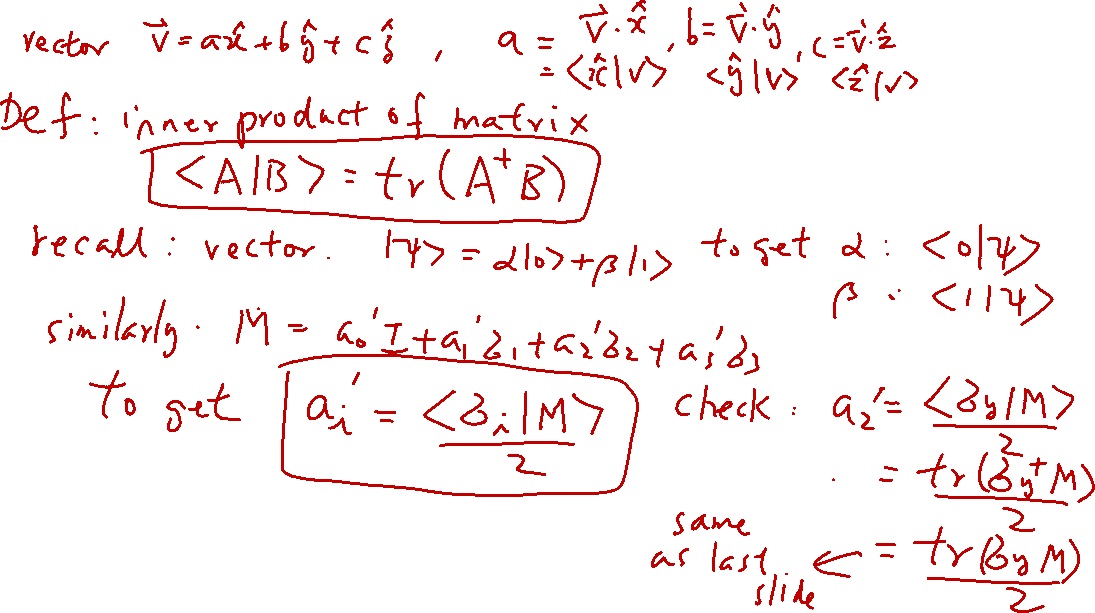 vector v⃗ = ax̂ + bŷ + cẑ , a = v⃗·x̂ , b = v⃗·ŷ , c = v⃗·ẑ
= <x̂|v> <ŷ|v> <ẑ|v>
Def : inner product of matrix
<A|B> = tr(A†B)
recall : vector. |ψ> = α|0> + β|1> to get α : <0|ψ>
β : <1|ψ>
similarly. M = a₀'I + a₁'σ₁ + a₂'σ₂ + a₃'σ₃
to get aᵢ' = <σᵢ|M>/2 check : a₂' = <σy|M>/2
= tr(σy†M)/2
same as last slide ← = tr(σyM)/2